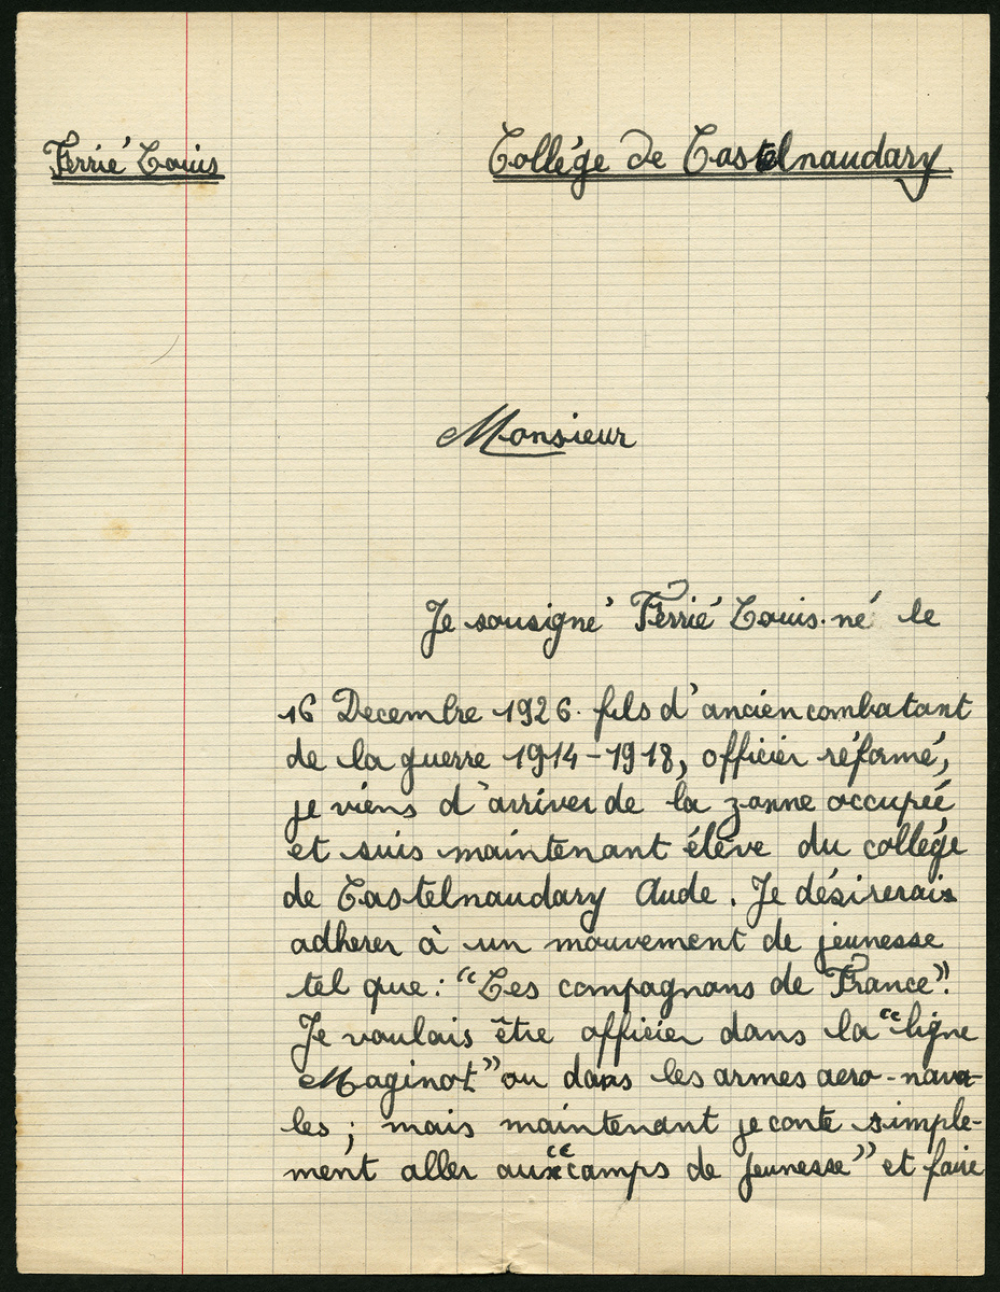 Ferrié Louis
Collége de Castelnaudary
Monsieur
Je sousigné Ferrié Louis. né le
16 Decembre 1926. fils d'ancien combatant
de la guerre 1914-1918, officier réformé,
je viens d'arriver de la zonne occupée
et suis maintenant éleve du collége
de Castelnaudary Aude. Je désirerais
adherer à un mouvement de jeunesse
tel que: "Les compagnons de France".
Je voulais être officier dans la "ligne
Maginot" ou dans les armes aero-nava-
les; mais maintenant je conte simple-
ment aller aux "camps de Jeunesse" et faire